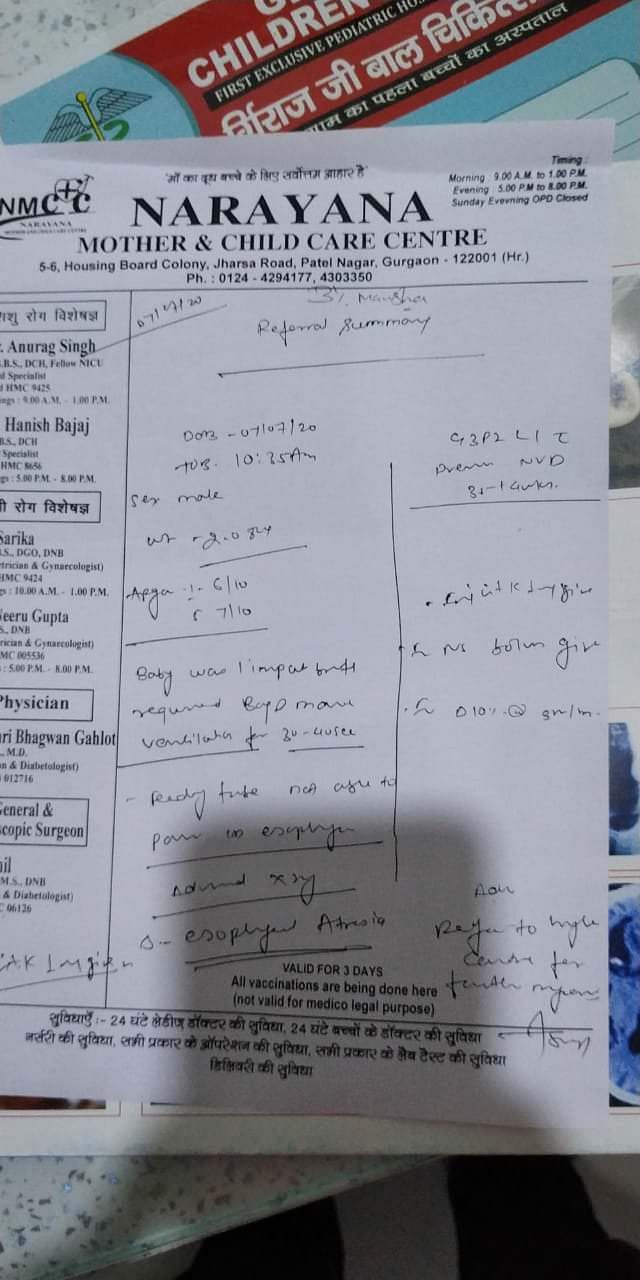 CHILDREN
FIRST EXCLUSIVE PEDIATRIC HO
र्गिराज जी बाल चिकित्स
का पहला बच्चों का अस्पताल
'माँ का दूध बच्चे के लिए सर्वोत्तम आहार है'
Timing :
Morning : 9.00 A.M. to 1.00 P.M.
Evening : 5.00 P.M to 8.00 P.M.
Sunday Evevning OPD Closed
NMC
NARAYANA
NARAYANA
MOTHER & CHILD CARE CENTRE
5-6, Housing Board Colony, Jharsa Road, Patel Nagar, Gurgaon - 122001 (Hr.)
Ph. : 0124 - 4294177, 4303350
शिशु रोग विशेषज्ञ
. Anurag Singh
.B.S., DCH, Fellow NICU
d Specialist
d HMC 9425
ings : 9.00 A.M. - 1.00 P.M.
Hanish Bajaj
B.S., DCH
Specialist
HMC 8656
gs : 5.00 P.M. - 8.00 P.M.
ी रोग विशेषज्ञ
Sarika
S., DGO, DNB
etrician & Gynaecologist)
HMC 9424
gs : 10.00 A.M. - 1.00 P.M.
eeru Gupta
S., DNB
rician & Gynaecologist)
MC 005536
: 5.00 P.M. - 8.00 P.M.
Physician
ri Bhagwan Gahlot
., M.D.
n & Diabetologist)
012716
General &
scopic Surgeon
nil
M.S., DNB
& Diabetologist)
C 06126
07/07/20
B/ Mansha
Referral Summary
DOB - 07/07/20
TOB. 10:35Am
Sex male
wt - 2.0
Apga 1- 6/10
5 7/10
Baby was
required
ventilator for 30-40sec
- feeding tube not able to
pass in
Advised xray
esophgeal Atresia
G3P2 L1
NVD
Inj vit K Img give
NS bolus give
D10% @
Adv
Refer to
Centre for
further
VALID FOR 3 DAYS
All vaccinations are being done here
(not valid for medico legal purpose)
सुविधाएँ :- 24 घंटे लेडीज़ डॉक्टर की सुविधा, 24 घंटे बच्चों के डॉक्टर की सुविधा
नर्सरी की सुविधा, सभी प्रकार के ऑपरेशन की सुविधा, सभी प्रकार के लैब टैस्ट की सुविधा
डिलिवरी की सुविधा